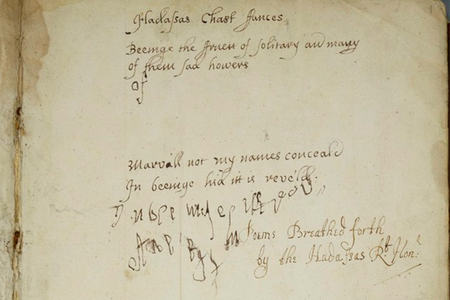 Hadassas Chast fances
Beeinge the fruett of solitary and many
of them sad howers
of
Marvill not my names conceald
In beeinge hid it is reveild
Poems Breathed forth
by the Hadassas Rt. Honr.